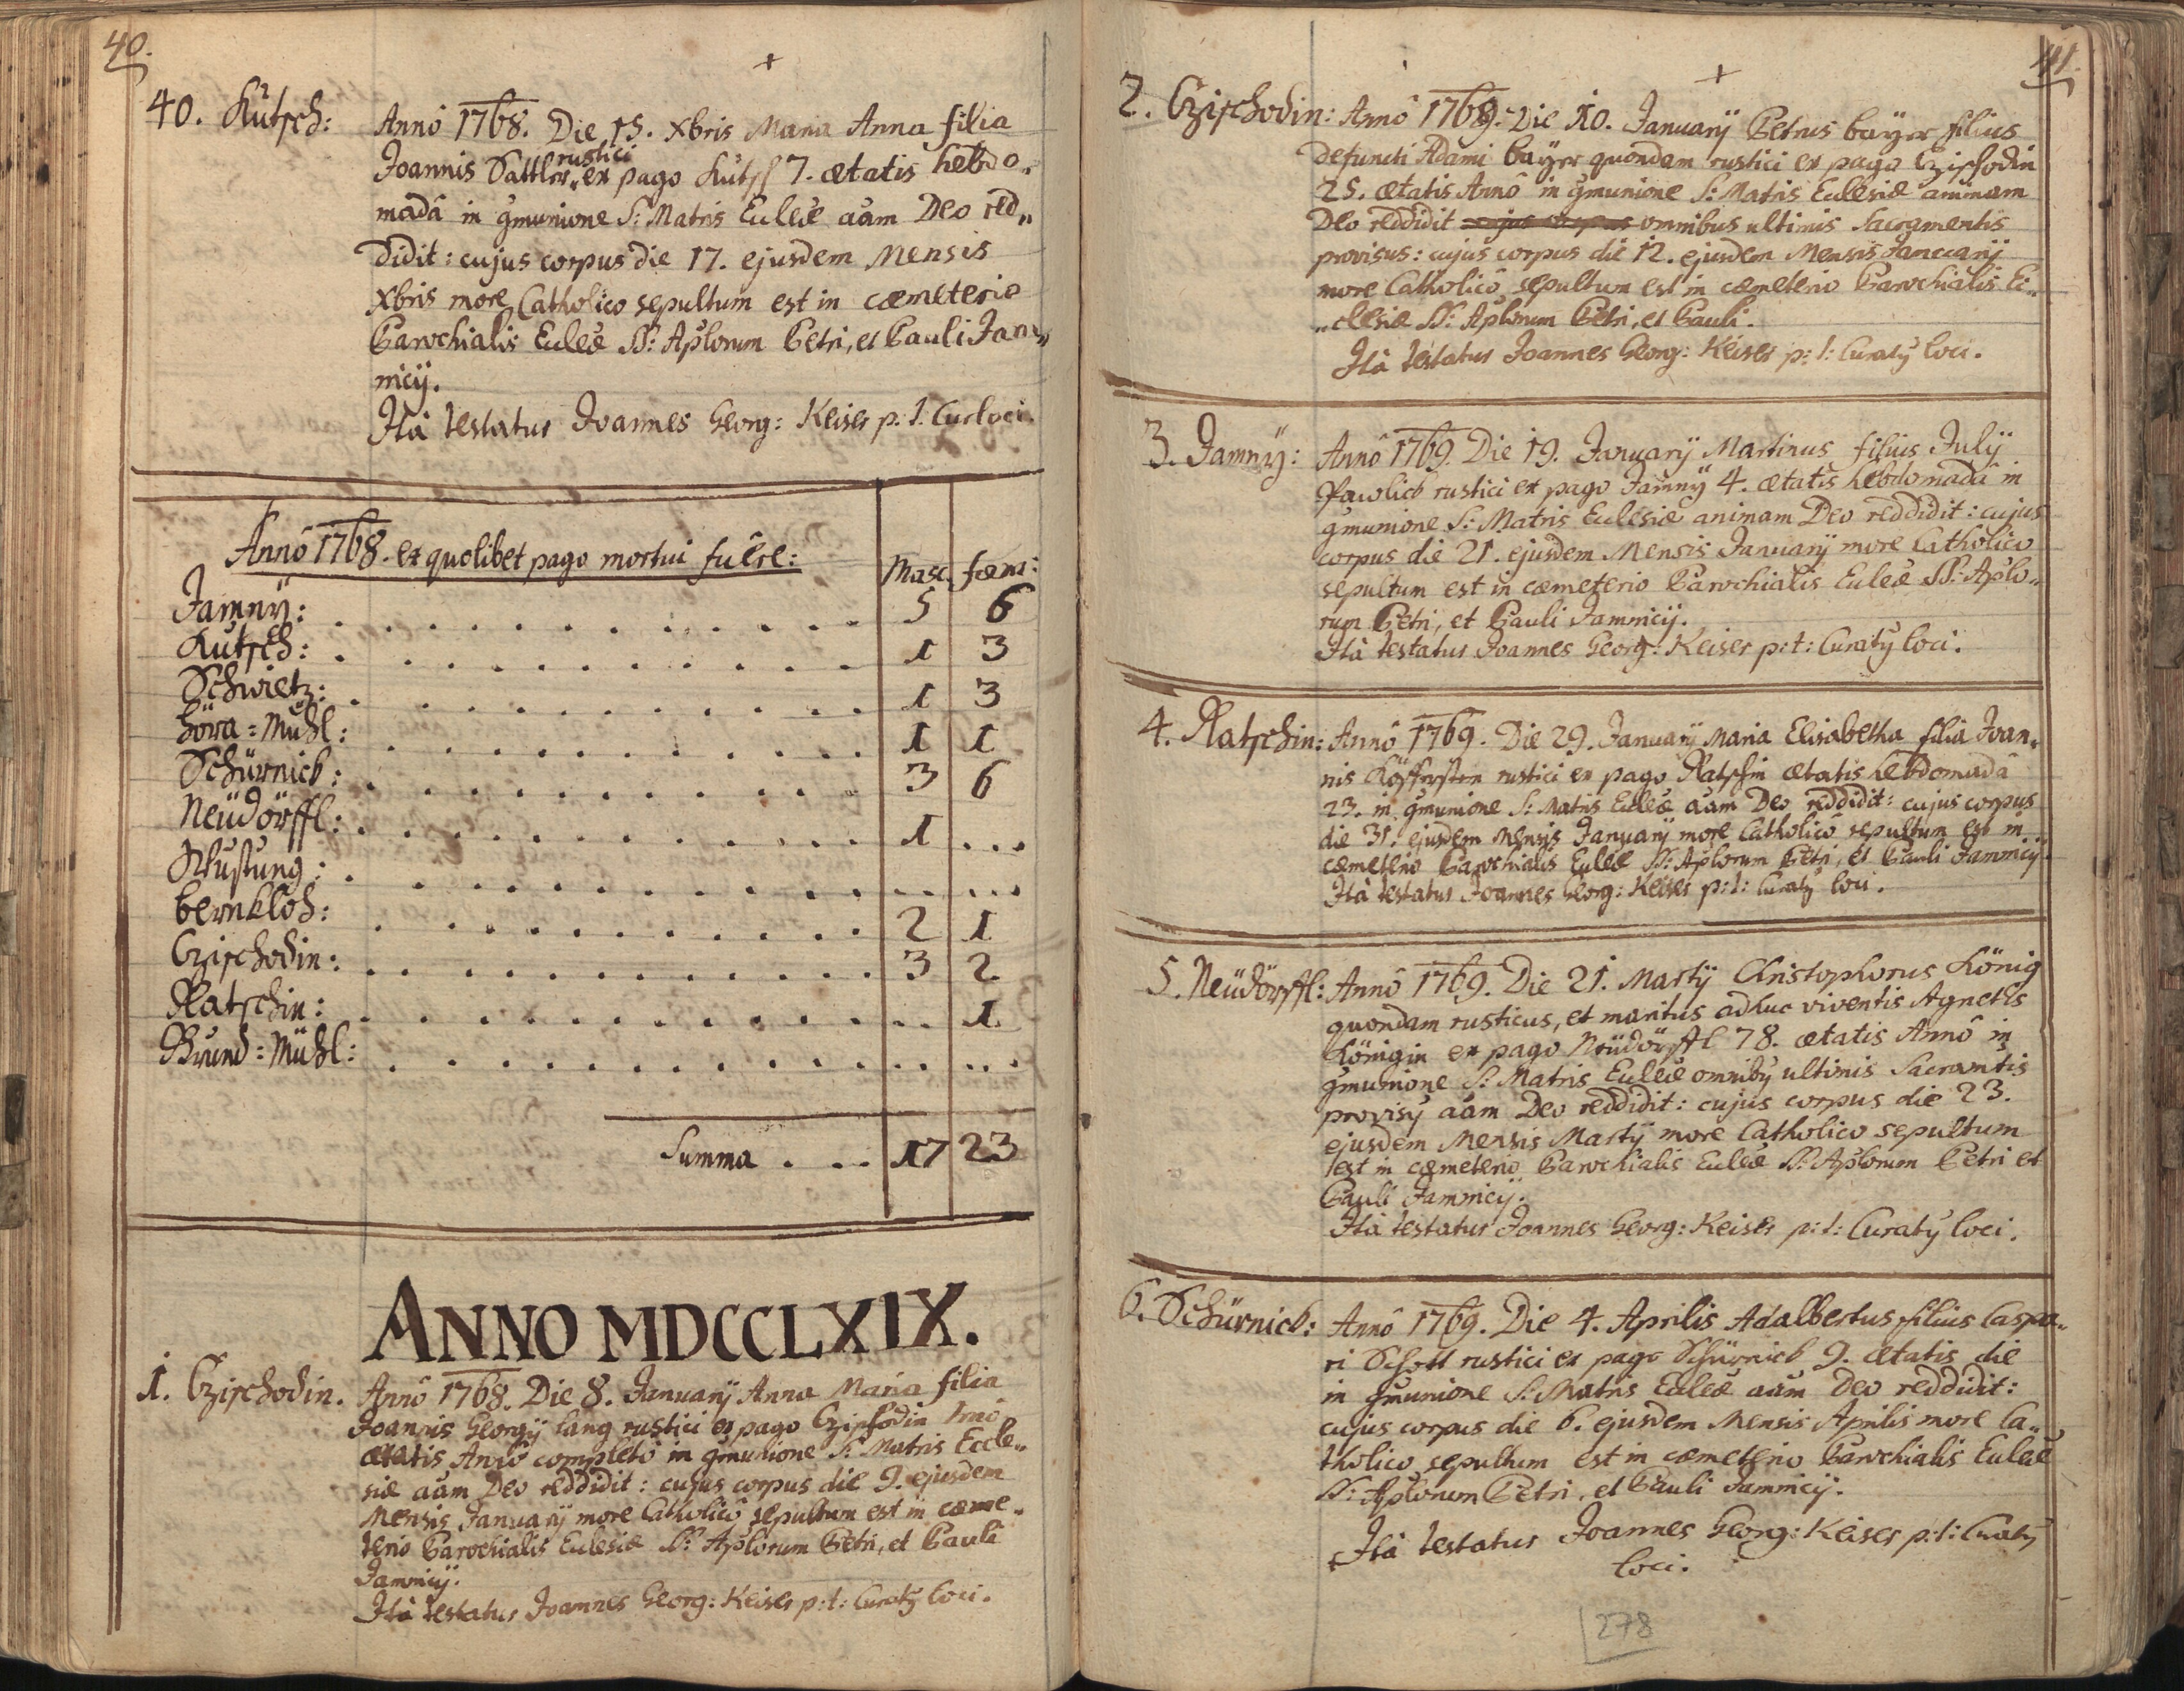 40.
+
40. Kütsch:
Annô 1768. Die 15. Xbris Maria Anna filia
Joannis Sattler rustici ex pago Kütsch 7. ætatis hebdo„
madâ in gmunione S: Matris Eccleæ aâm Deo red„
didit: cujus corpus die 17. ejusdem Mensis
Xbris more Catholico sepultum est in cæmeterio
Parochialis Eccleæ SS: Aplorum Petri, et Pauli Jam„
nicij.
Ità testatur Joannes Georg: Keiser p: t: Cur loci.
Annô 1768. ex quolibet pago mortui fuêre: Masc. fæm:
Jamnÿ: . . . . . . . . . . . . 5 6
Kütsch: . . . . . . . . . . . . 1 3
Schwietz: . . . . . . . . . . . . 1 3
Höra=Mühl: . . . . . . . . . . . . 1 1
Schürnick: . . . . . . . . . . . . 3 6
Neüdörffl: . . . . . . . . . . . . 1 ...
Wustung: . . . . . . . . . . . . ... ...
bernkloh: . . . . . . . . . . . . 2 1
Czischodin: . . . . . . . . . . . . 3 2
Ratschin: . . . . . . . . . . . . .. 1.
Brund=Mühl: . . . . . . . . . . . . .. ...
Summa . . .. 17 23
ANNO MDCCLXIX.
1. Czischodin. Annô 1768. Die 8. Januarÿ Anna Maria filia
Joannis Georgÿ Lang rustici ex pago Czischodin 1mô
ætatis Annô completô in gmunione S: Matris Eccle„
siæ aâm Deo reddidit: cujus corpus die 9. ejusdem
Mensis Januarij more Catholicô sepultum est in cæme„
terio Parochialis Ecclesiæ SS: Aplorum Petri, et Pauli
Jamnicÿ.
Ità testatur Joannes Georg: Keiser p: t: Curatÿ loci.
41.
+
2. Czischodin: Annô 1769. Die 10. Januarÿ Petrus bayer filius
Defuncti Adami bayer quondam rustici ex pago Czischodin
25. ætatis Annô in gmunione S: Matris Ecclesiæ animam
Deo reddidit cujus corpus omnibus ultimis Sacramentis
provisus: cujus corpus die 12. ejusdem Mensis Januarij
more Catholicô sepultum est in cæmeterio Parochialis Ec„
„clesiæ SS: Aplorum Petri, et Pauli.
Ità testatur Joannes Georg: Keiser p: t: Curatÿ loci.
3. Jamnÿ: Annô 1769. Die 19. Januarÿ Martinus filius Julÿ
Pawlick rustici ex pago Jamnÿ 4. ætatis hebdomadâ in
gmunione S: Matris Ecclesiæ animam Deo reddidit: cujus
corpus die 21. ejusdem Mensis Januarÿ more Catholico
sepultum est in cæmeterio Parochialis Eccleæ SS: Aplo„
rum Petri, et Pauli Jamnicij.
Ità testatur Joannes Georg: Keiser p: t: Curatÿ loci.
4. Ratschin: Annô 1769. Die 29. Januarÿ Maria Elisabetha filia Joan„
nis rustici ex pago Ratschin ætatis hebdomadâ
23. in gmunione S: Matris Eccleæ aâm Deo reddidit: cujus corpus
die 31. ejusdem Mensis Januarÿ more Catholicô sepultum est in
cæmeterio Parochialis Eccleæ SS: Aplorum Petri, et Pauli Jamnicij.
Ità testatur Joannes Georg: Keiser p: t: Curatÿ loci.
5. Neüdörffl: Annô 1769. Die 21. Martÿ Christophorus König
quondam rusticus, et maritus adhuc viventis Agnetis
Königin ex pago Neüdörffl 78. ætatis Annô in
gmunione S: Matris Eccleæ omnibÿ ultimis Sacramtis
provisÿ aâm Deo reddidit: cujus corpus die 23.
ejusdem Mensis Martÿ more Catholico sepultum
est in cæmeterio Parochialis Eccleæ SS: Aplorum Petri et
Pauli Jamnicij.
Ità testatur Joannes Georg: Keiser p: t: Curatÿ loci.
6. Schürnick: Annô 1769. Die 4. Aprilis Adalbertus filius Caspa„
ri Schott rustici ex pago Schürnick 9. ætatis die
in gmunione S: Matris Eccleæ aâm Deo reddidit:
cujus corpus die 6. ejusdem Mensis Aprilis more Ca„
tholico sepultum est in cæmeterio Parochialis Eccleæ
SS: Aplorum Petri, et Pauli Jamnicij.
Ità testatur Joannes Georg: Keiser p: t: Curatÿ
loci.
278